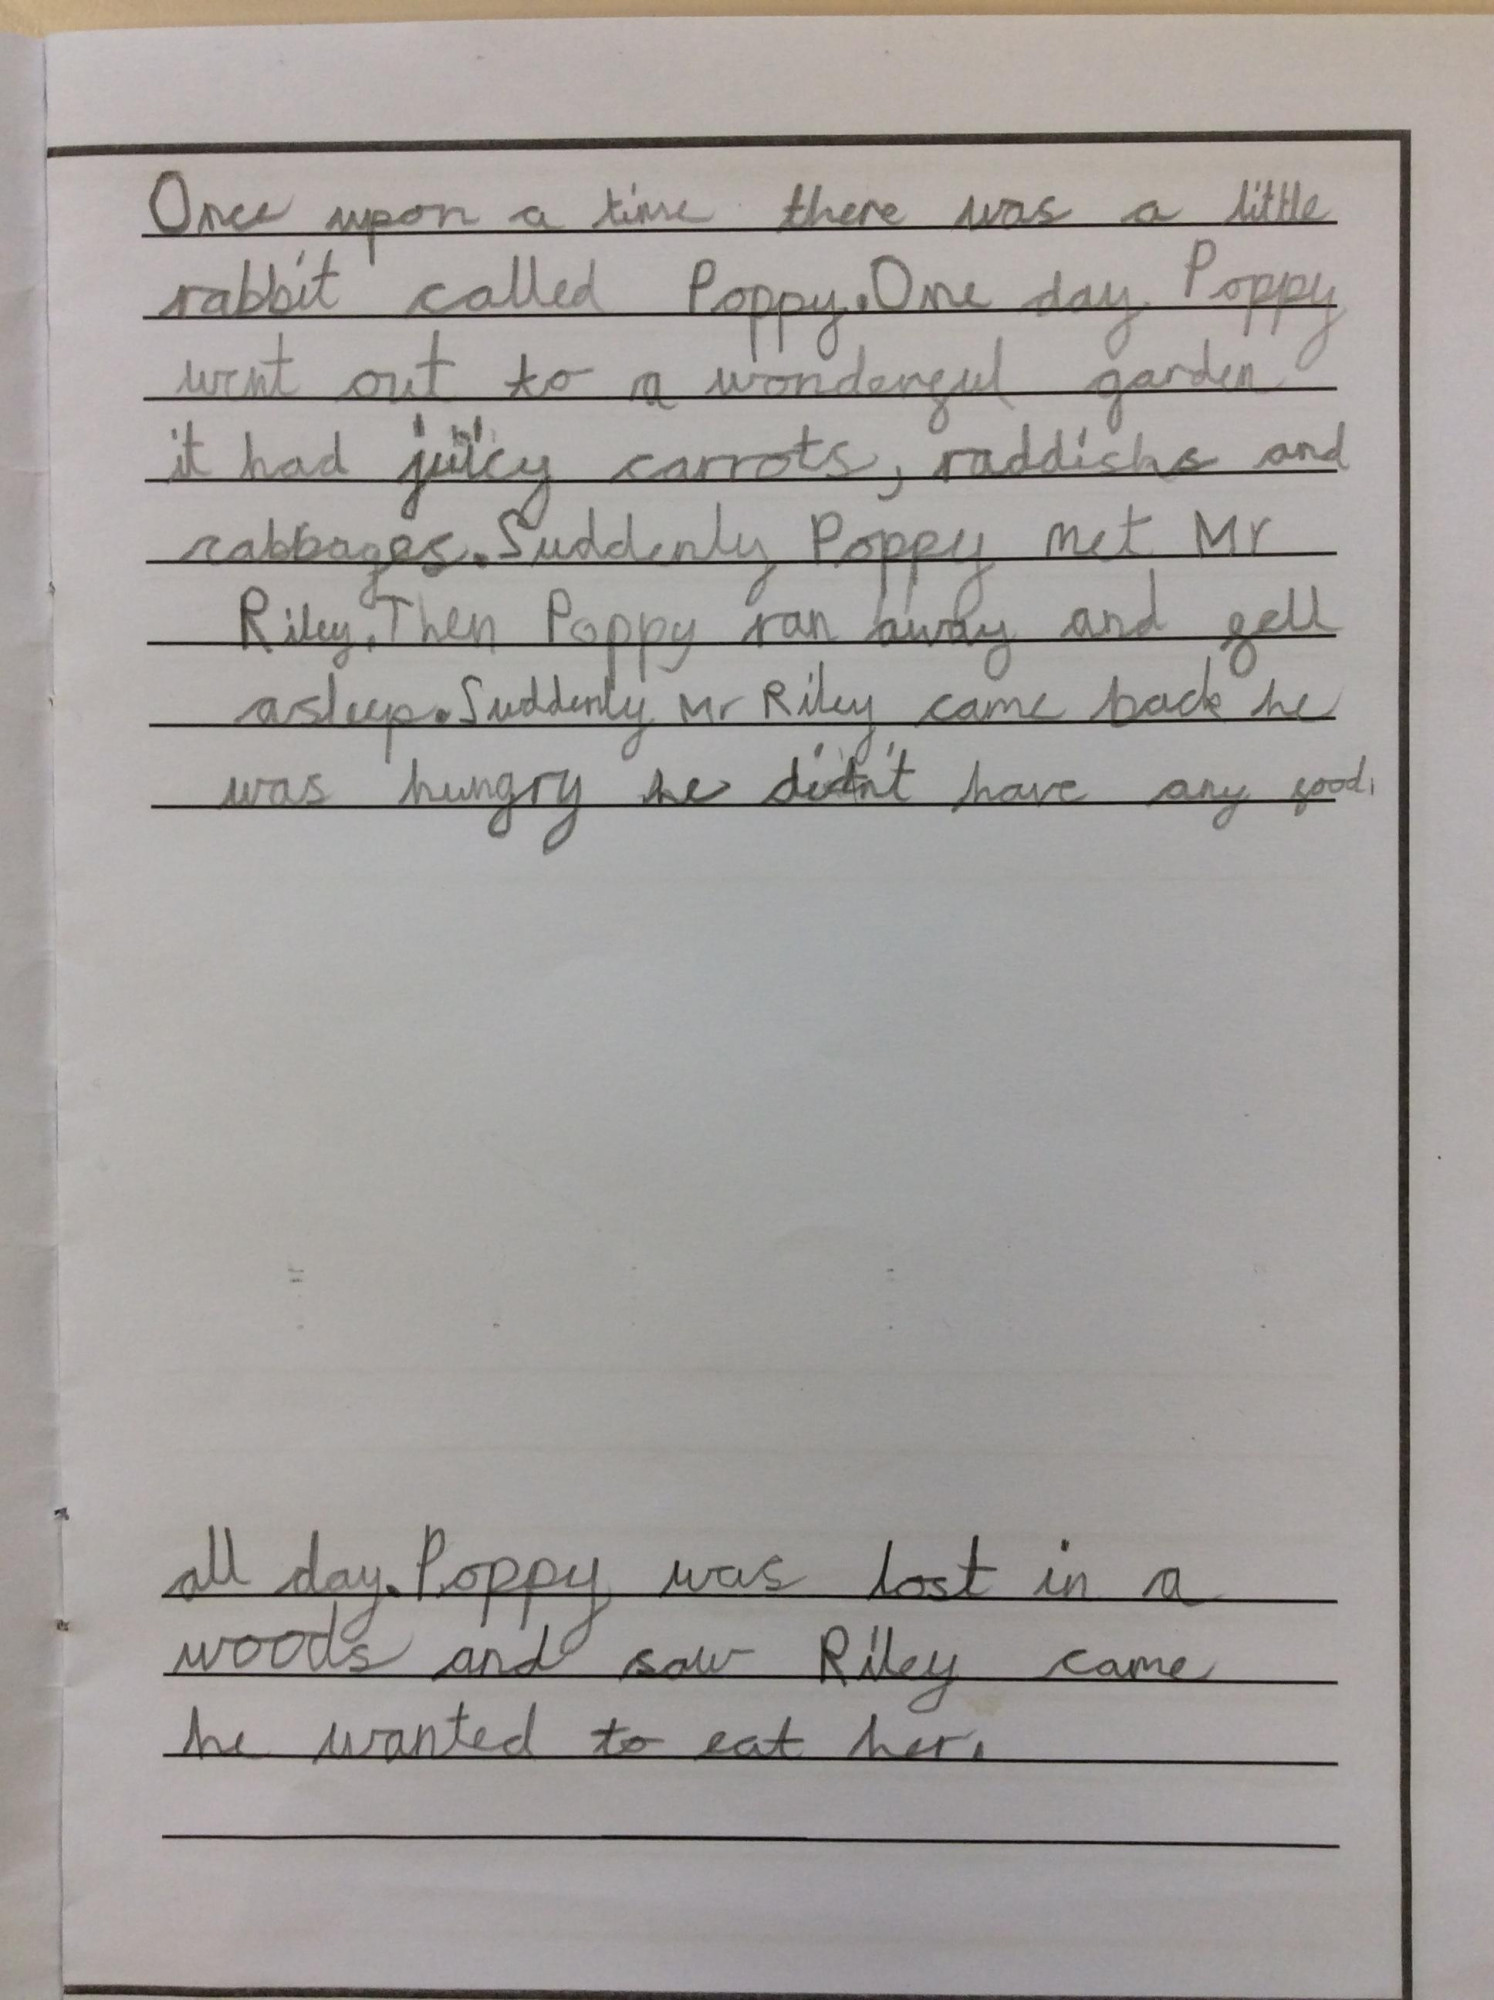 Once upon a time there was a little
rabbit called Poppy. One day Poppy
went out to a wonderful garden
it had juicy carrots, raddishs and
cabbages. Suddenly Poppy met Mr
Riley. Then Poppy ran away and fell
asleep. Suddenly Mr Riley came back he
was hungry he didn't have any food.
all day. Poppy was lost in a
woods and saw Riley came
he wanted to eat her.